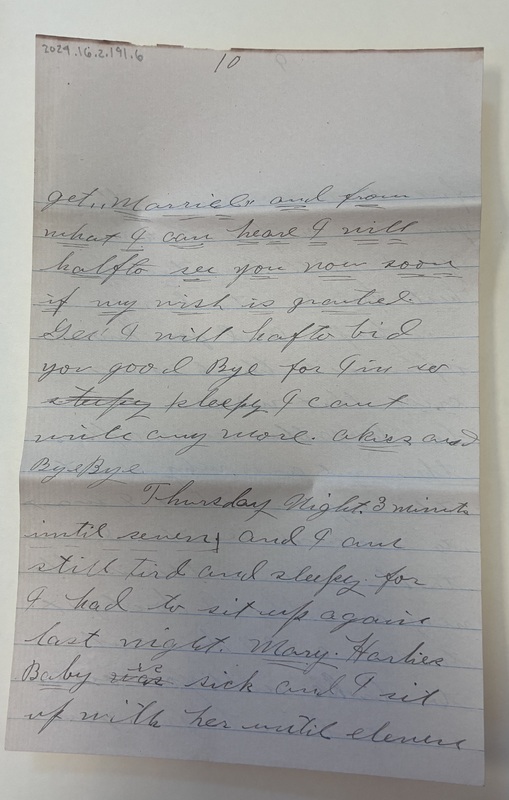 2024.16.2.191.6
10
get,, Married,, and from
what I can heare I will
halfto see you now soon
if my wish is granted.
Gee! I will hafto bid
you good Bye for I'm so
sleepy I cant
write any more. a kiss and
ByeBye
Thursday Night. 3 minute
until seven, and I am
still Tird and sleepy for
I had to sit up again
last night. Mary. Harlies
Baby was is sick and I sit
up with her until elevene